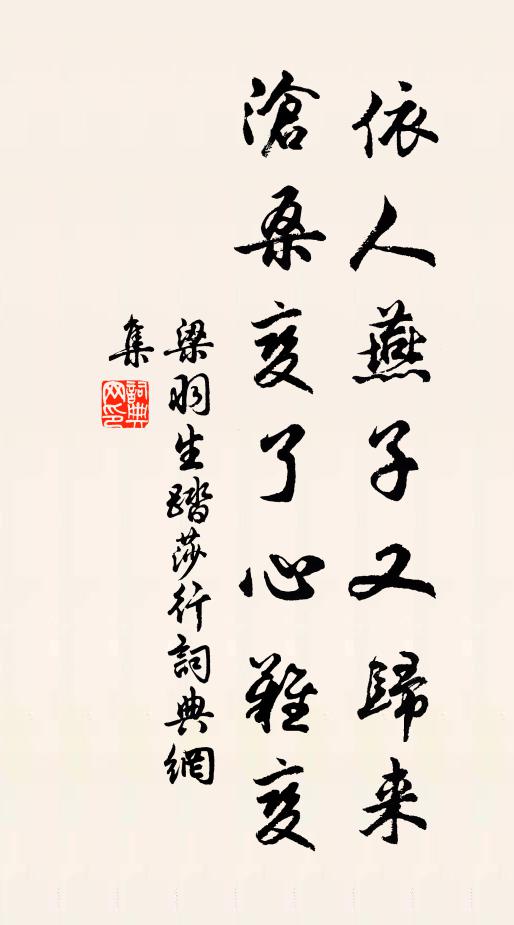 依人燕子又歸来
滄桑变了心難变
梁羽生踏莎行詞典網
集
詞典網印